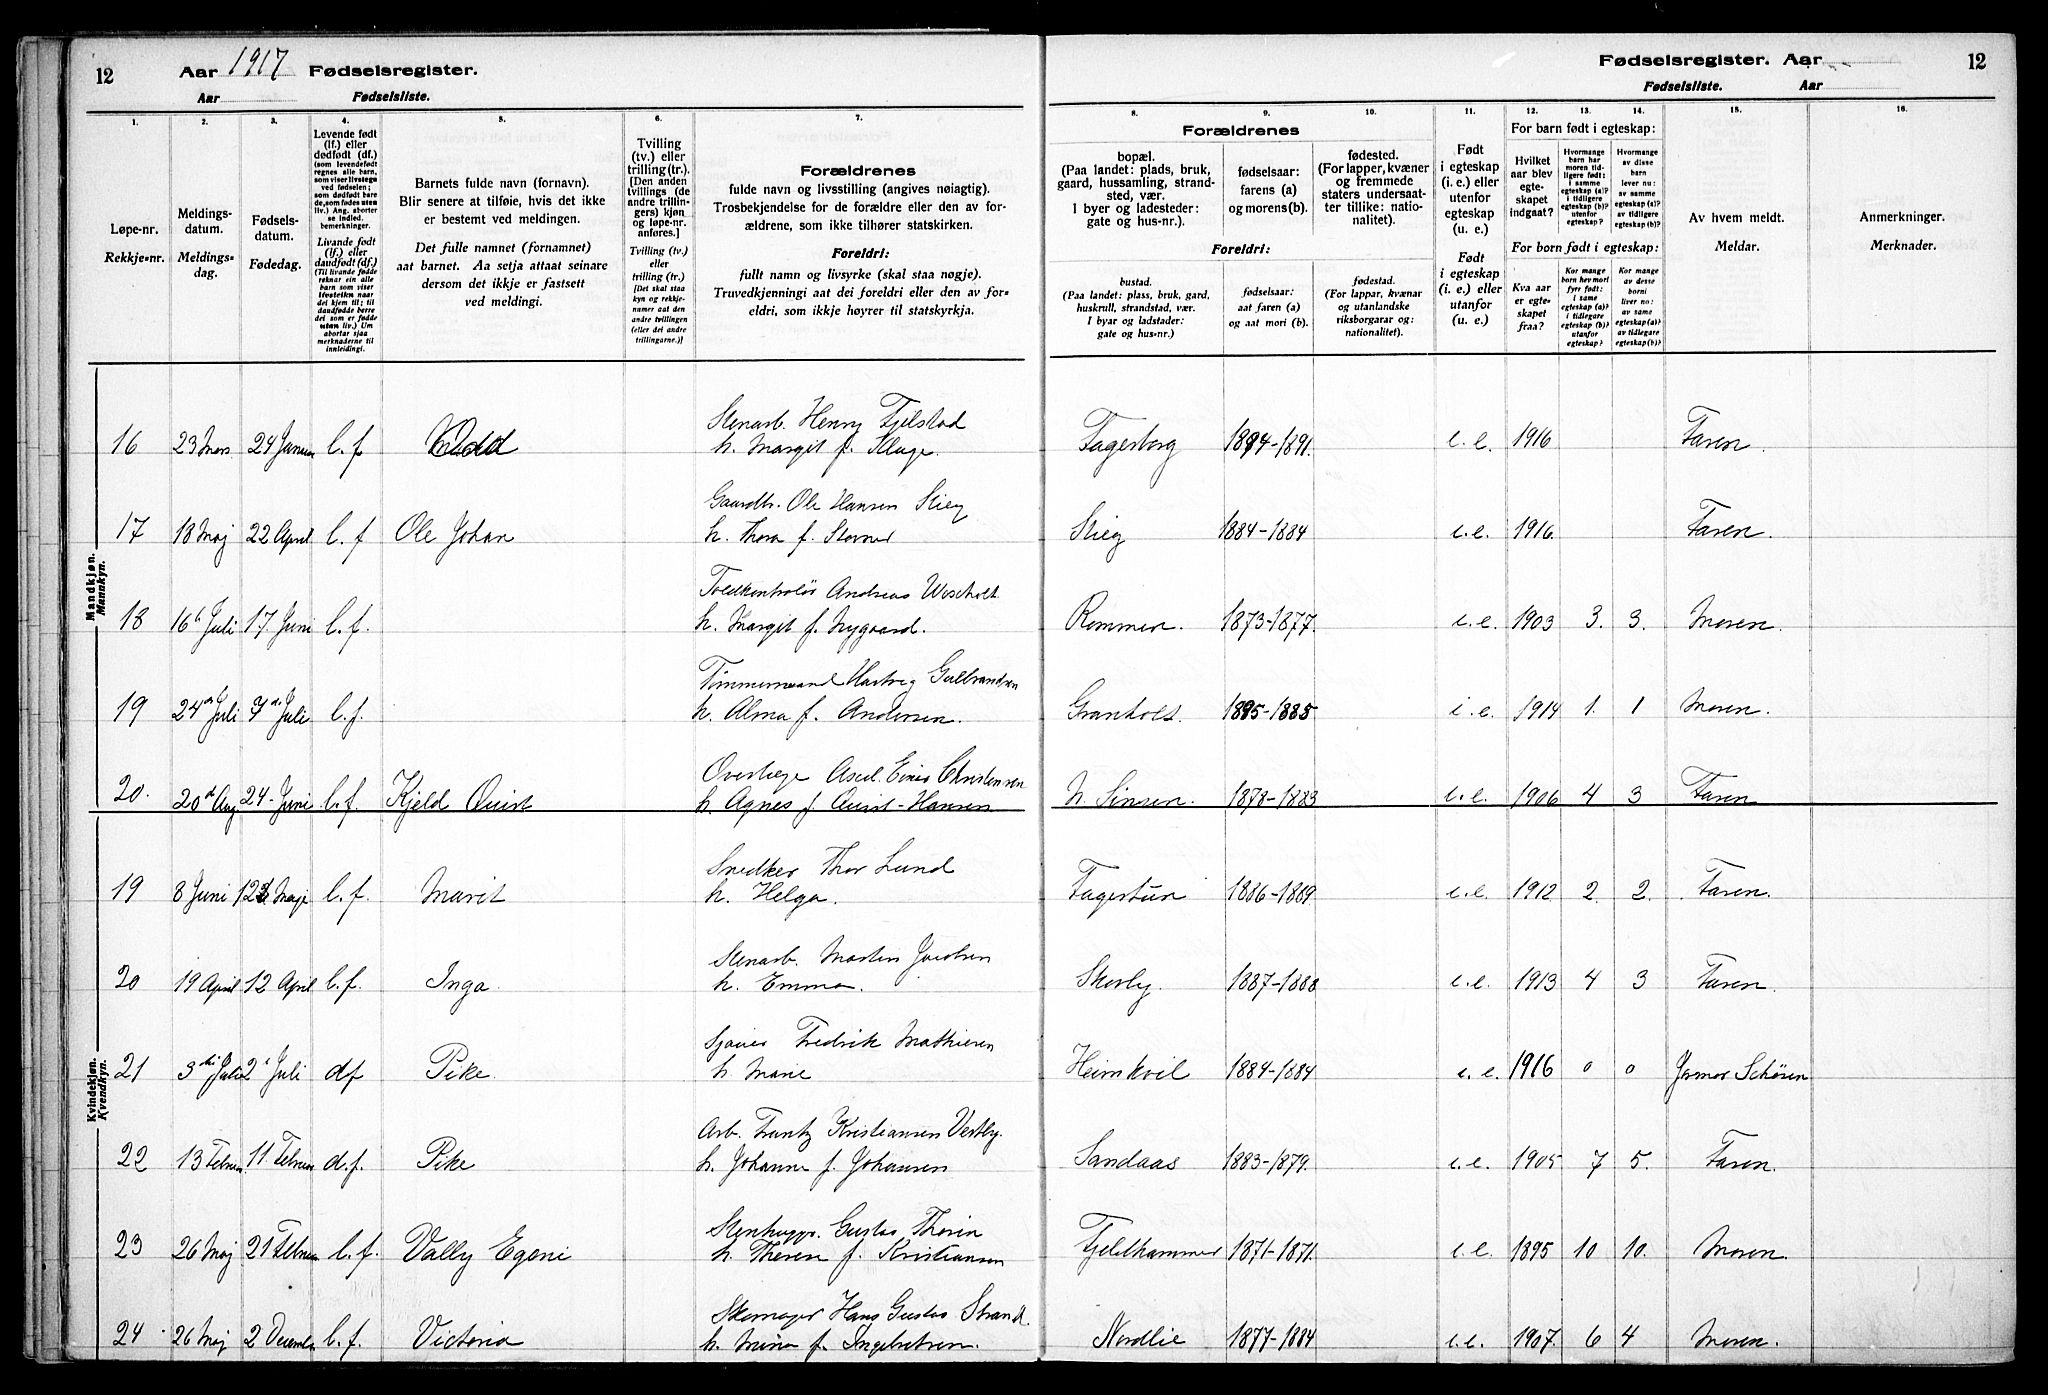 12 Aar 1917 Fødselsregister.
Aar Fødselsliste.
Fødselsregister. Aar 12
Fødselsliste. Aar
1. 2. 3. 4. 5. 6. 7. 8. 9. 10. 11. 12. 13. 14. 15. 16.
Løpe-nr.
Rekkje-nr.
Meldings-
datum.
Meldings-
dag.
Fødsels-
datum.
Fødedag.
Levende født
(lf.) eller
dødfødt (df.)
(som levendefødt
regnes alle barn,
som viser livstegn
ved fødselen;
som dødfødt bare
de, som fødes uten
liv.) Ang. aborter
se indled.
bemerkninger.
Livande født
(lf.) eller
daudfødt (df.)
(Til livande fødde
reknar ein alle
barn som viser
livsteikn naar
dei kjem til; til
daudfødde berre
dei som er fødde
utan liv.) Um
abortar sjaa
merknaderne til
innleidingi.
Barnets fulde navn (fornavn).
Blir senere at tilføie, hvis det ikke
er bestemt ved meldingen.
Det fulle namnet (fornamnet)
aat barnet. Aa setja attaat seinare
dersom det ikkje er fastsett
ved meldingi.
Tvilling
(tv.) eller
trilling (tr.).
[Den anden
tvillings (de
andre trillin-
gers) kjøn
og løpe-nr.
anføres.]
Tvilling (tv.)
eller
trilling (tr.)
[Det skal staa
kyn og rekkje-
numer aat den
andre tvillingen
(eller dei andre
trillingarne.)]
Forældrenes
fulde navn og livsstilling (angives nøiagtig).
Trosbekjendelse for de forældre eller den av for-
ældrene, som ikke tilhører statskirken.
Foreldri:
fullt namn og livsyrke (skal staa nøgje).
Truvedkjenningi aat dei foreldri eller den av for-
eldri, som ikkje høyrer til statskyrkja.
Forældrenes
bopæl.
(Paa landet: plads, bruk,
gaard, hussamling, strand-
sted, vær.
I byer og ladesteder:
gate og hus-nr.).
fødselsaar:
farens (a)
og morens (b).
fødested.
(For lapper, kvæner
og fremmede
staters undersaat-
ter tillike: natio-
nalitet).
Foreldri:
bustad.
(Paa landet: plass, bruk, gard,
huskrull, strandstad, vær.
I byar og ladstader:
gate og hus-nr.)
fødselsaar:
aat faren (a)
og aat mori (b).
fødestad.
(For lappar, kvænar
og utanlandske
riksborgarar og:
nationalitet).
Født
i egteskap
(i. e.) eller
utenfor
egteskap
(u. e.)
Født
i egteskap
(i. e.) eller
utanfor
(u. e.)
For barn født i egteskap:
Hvilket
aar blev
egte-
skapet
indgaat?
Hvormange
barn har
moren tid-
ligere født:
i samme
egteskap (a)?
i tidligere
egteskap (b)?
utenfor
egteskap?
Hvormange
av disse
barn
lever nu:
av samme
egteskap (a)?
av tidligere
egteskap (b)?
For born født i egteskap:
Kva aar
er egte-
skapet
fraa?
Kor mange
born hev mori
fyrr født:
i same
egteskap (a)?
i tidlegare
egteskap (b)?
utanfor
egteskap?
Kor mange
av desse
borni
liver no:
av same
egteskap (a)?
av tidlegare
egteskap (b)?
Av hvem meldt.
Meldar.
Anmerkninger.
Merknader.
Mandkjøn.
Mannkyn.
Stenarb. Henry Fjelstad
16 23 Mars 24 Januar l. f Odd h. Margit f. Fagerborg 1894-1891. i. e. 1916 Faren.
Gaardbr. Ole Hansen Stieg
17 18 Maj 22 April l. f Ole Johan h. Thora f. Storner Stieg 1884-1884 i. e. 1916. Faren.
Toldkontrolør Andreas
18 16 Juli 17. Juni l. f. h. Margit f. Nygaard. Rommen. 1873-1877. i. e. 1903 3. 3. Moren.
Tømmermand Hartvig Gulbrandsen
19 24 Juli 7 Juli l. f. h. Alma f. Andersen. Granholt. 1885-1885 i. e. 1914 1. 1 Moren.
Overlæge Axel Einar Christensen
20. 20 Aug 24. Juni l. f. Kjeld Quist h. Agnes f. Quist-Hansen N. Sinsen. 1878-1883 i. e. 1906 4 3 Faren
Kvindekjøn.
Kvendkyn.
Snedker Thor Lund
19 8 Juni Maj l. f. Marit h. Helga. Fagertun 1886-1889 i. e. 1912 2. 2. Faren.
Stenarb. Martin Jacobsen
20 19 April 12 April l. f. Inga. h. Emma. Skorby. 1887-1888 i. e. 1913 4 3 Faren.
Fredrik Mathisen
21 3 Juli 2 Juli df Pike. h. Marie Heimkvil 1884-1884 i. e. 1916 0 0 Jormor Schøren
Arb. Frantz Kristiansen Vestby.
22 13 Februar 11 Februar d. f. Pike h. Johanne f. Johansen Sandaas 1883-1879. i. e. 1905 7 5. Faren.
Stenhugger. Gustav Thorin
23 26 Maj 21 Februar l. f. Vally Egeni h. Therese f. Kristiansen Fjeldhammer 1871-1871. i. e. 1895 10 10. Moren.
Skomager Hans Gustav Strand.
24 26 Maj 2 December l. f. Victoria h. Mina f. Ingebretsen. Nordlie 1877-1884 i. e. 1907. 6 4 Moren.